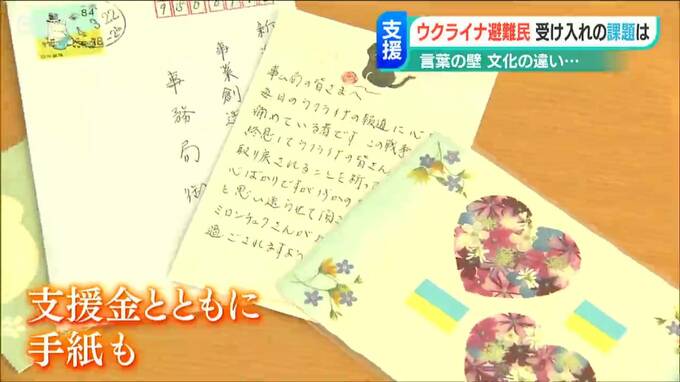 支援
ウクライナ避難民 受け入れの課題は
言葉の壁 文化の違い…
84
事業創造
事務局
事ム局の皆さまへ
毎日のウクライナの報道に心
痛めている者です この戦争
終息してウクライナの皆さん
取り戻されることを祈って
心ばかりですが
と思い送らせて頂
ミロンチュクさんが
過ごされますよう
支援金とともに
手紙も